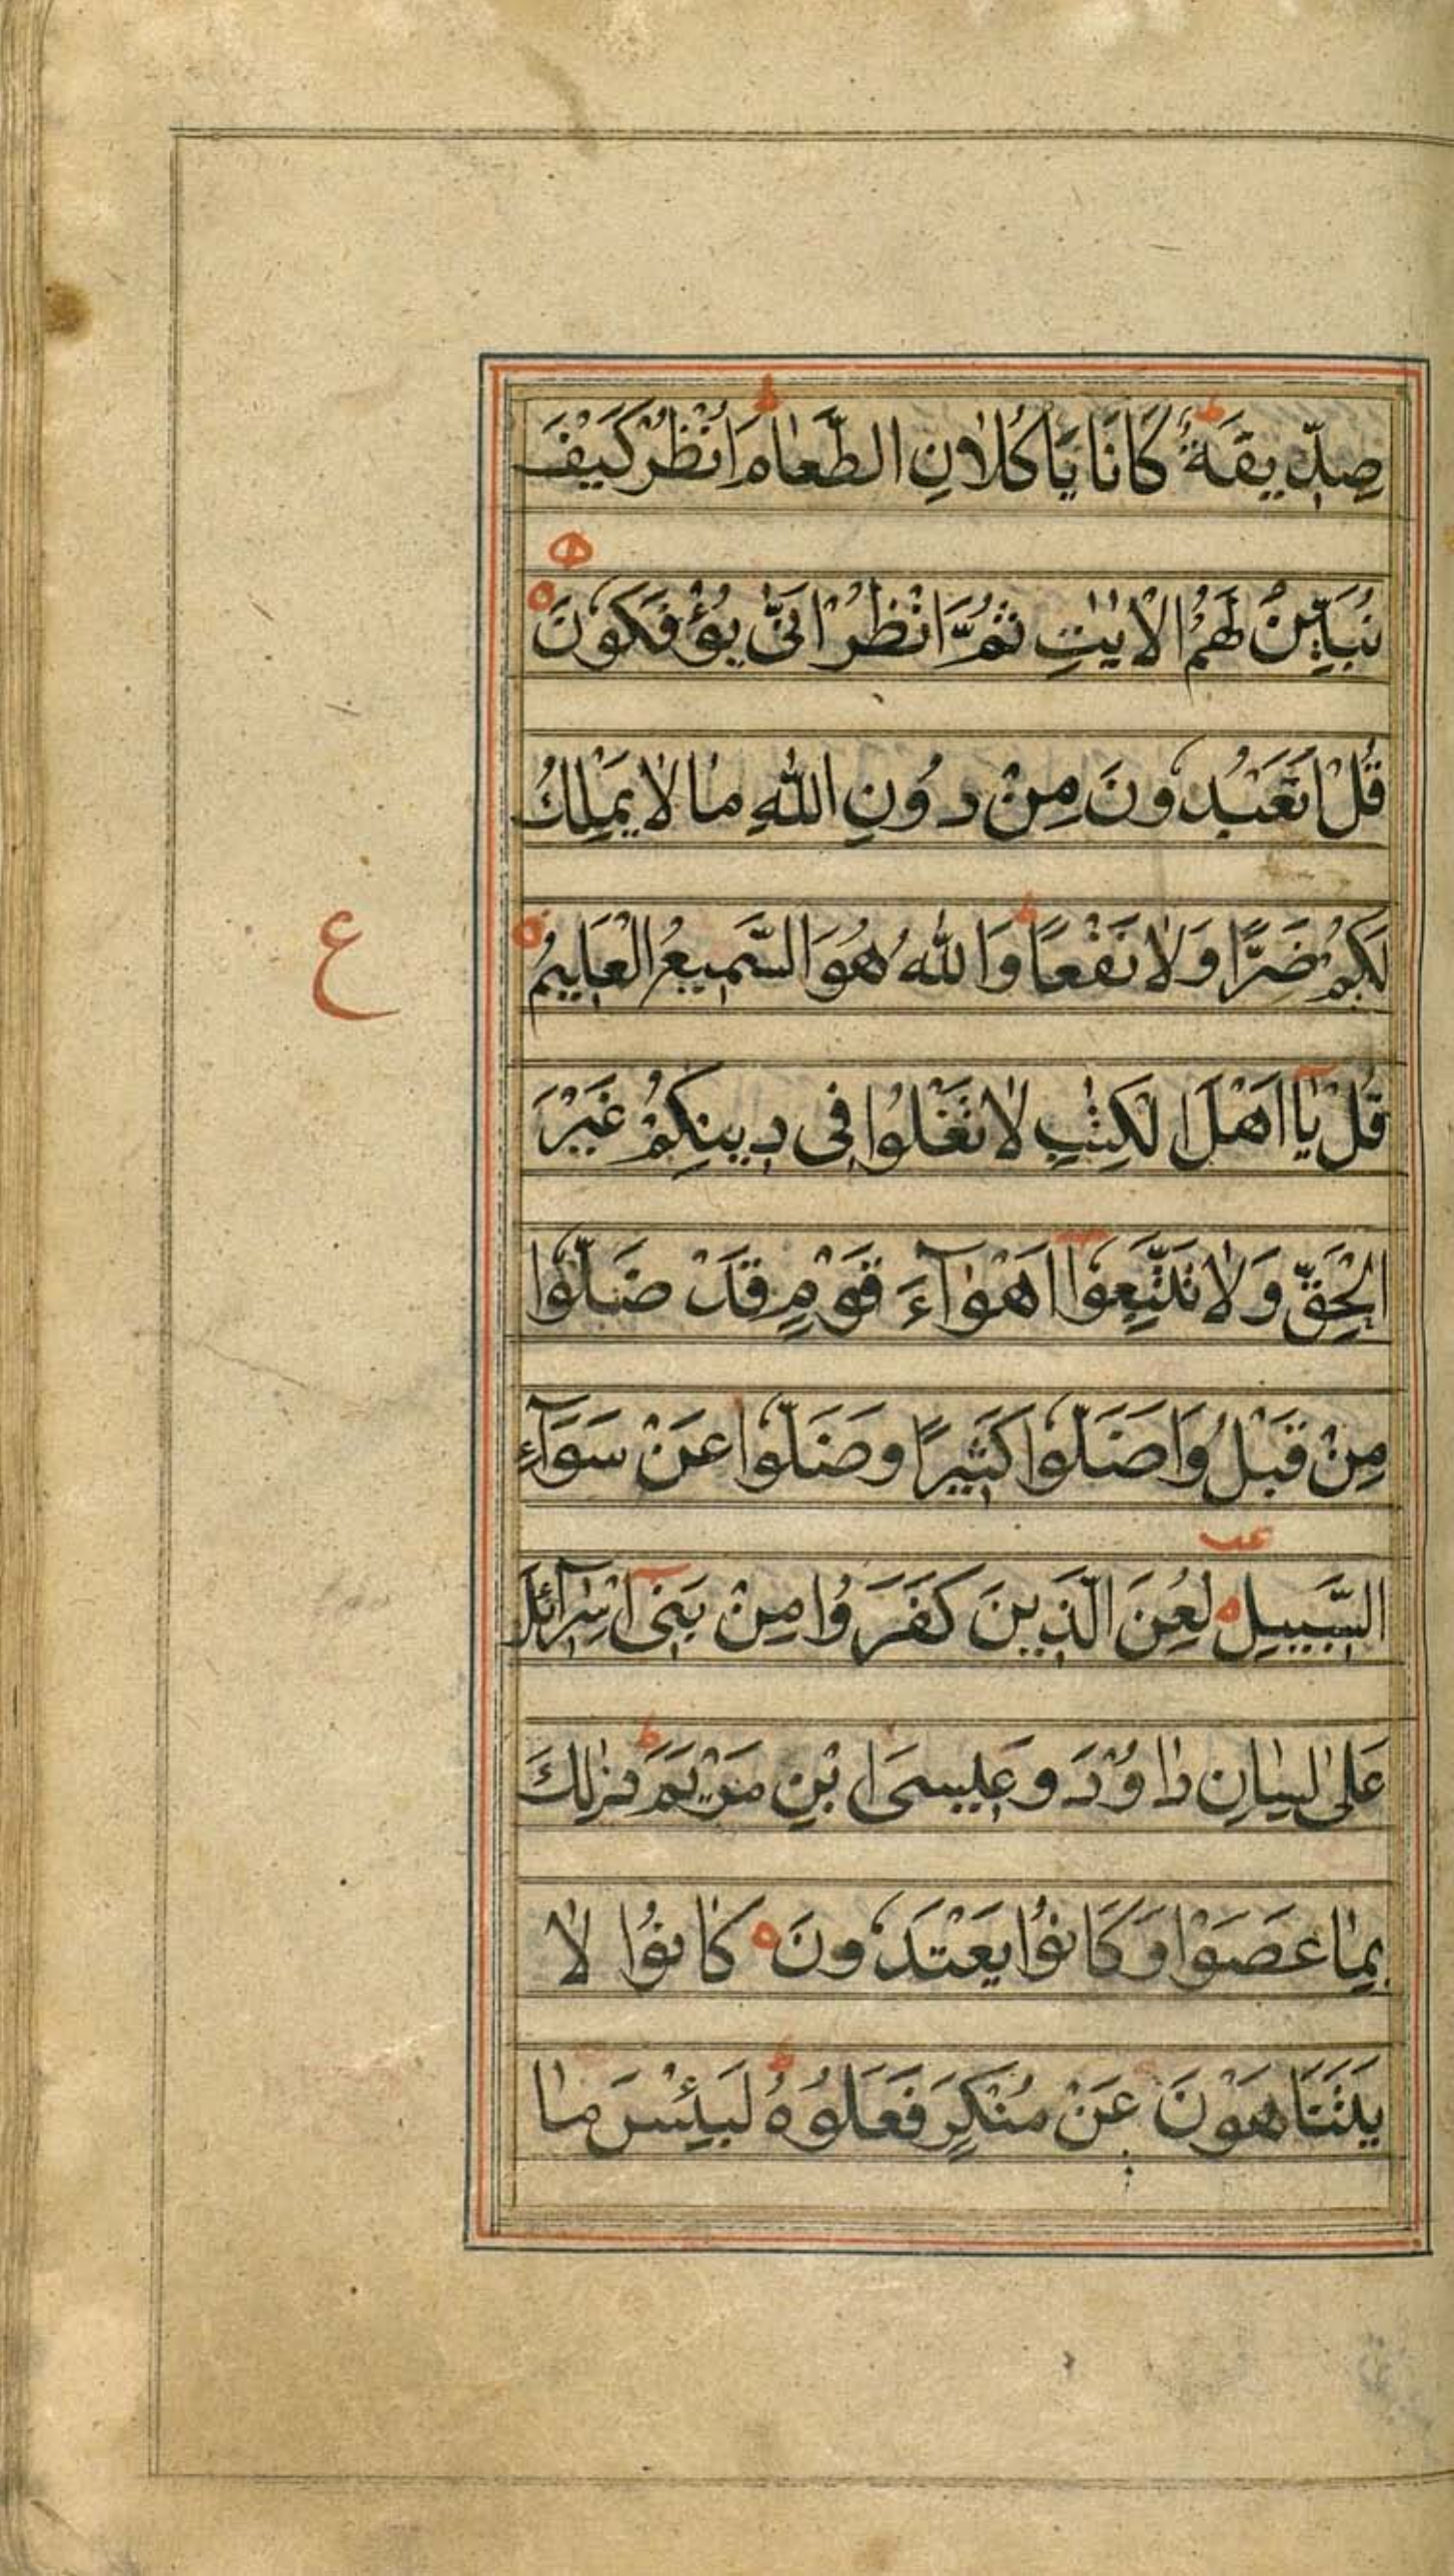 صِدِّيقَةٌ ط كَانَا يَاكُلَانِ الطَّعَامَ ط اُنْظُرْ كَيْفَ
نُبَيِّنُ لَهُمُ الْاٰيٰتِ ثُمَّ انْظُرْ اَنّٰى يُؤْفَكُونَ ه
قُلْ اَتَعْبُدُونَ مِنْ دُونِ اللّٰهِ مَا لَا يَمْلِكُ
لَكُمْ ضَرًّا وَلَا نَفْعًا ط وَاللّٰهُ هُوَ السَّمِيعُ الْعَلِيمُ ه
ع
قُلْ يَا اَهْلَ الْكِتٰبِ لَا تَغْلُوا فِى دِينِكُمْ غَيْرَ
الْحَقِّ وَلَا تَتَّبِعُوا اَهْوَآءَ قَوْمٍ قَدْ ضَلُّوا
مِنْ قَبْلُ وَاَضَلُّوا كَثِيرًا وَضَلُّوا عَنْ سَوَآءِ
السَّبِيلِ ه لُعِنَ الَّذِينَ كَفَرُوا مِنْ بَنِى اِسْرَآئِلَ
عَلٰى لِسَانِ دَاوُدَ وَعِيسَى ابْنِ مَرْيَمَ ط ذٰلِكَ
بِمَا عَصَوْا وَكَانُوا يَعْتَدُونَ ه كَانُوا لَا
يَتَنَاهَوْنَ عَنْ مُنْكَرٍ فَعَلُوهُ ط لَبِئْسَ مَا